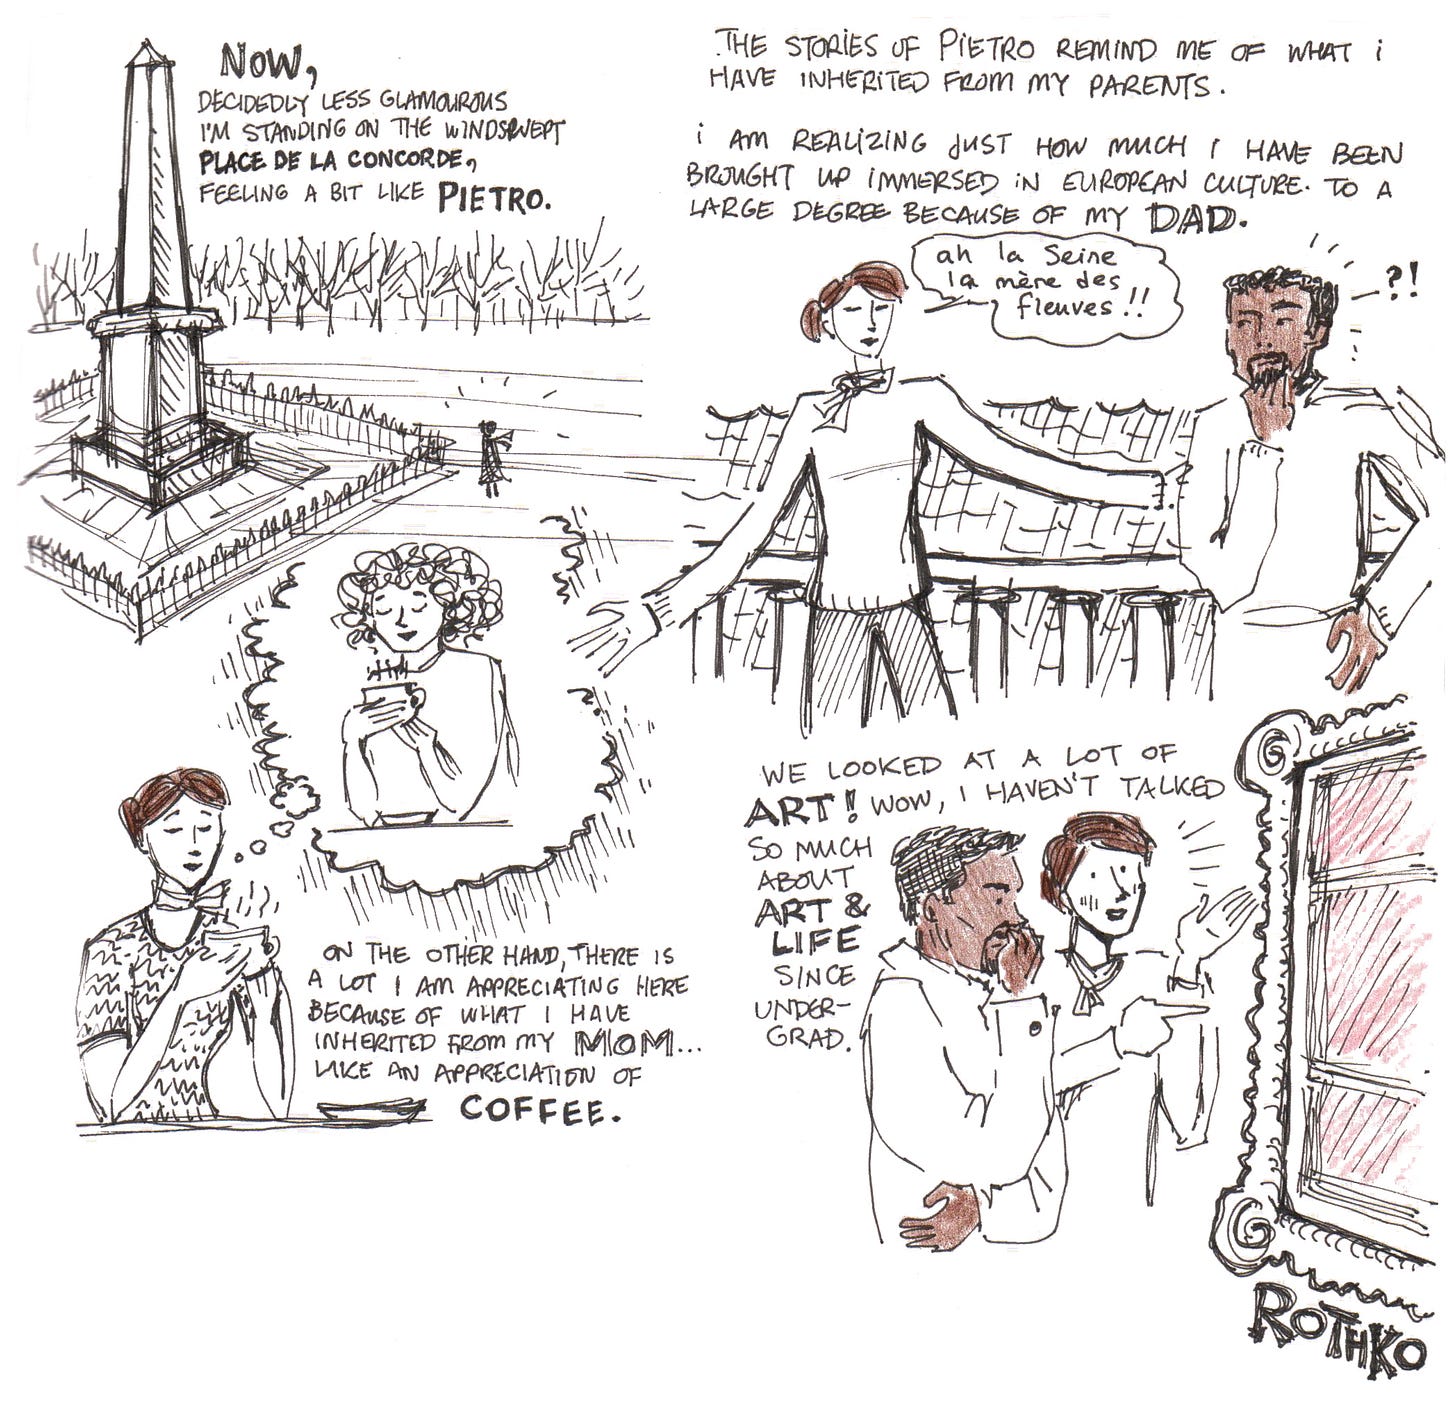 NOW,
DECIDEDLY LESS GLAMOUROUS
I'M STANDING ON THE WINDSWEPT
PLACE DE LA CONCORDE,
FEELING A BIT LIKE PIETRO.
THE STORIES OF PIETRO REMIND ME OF WHAT i
HAVE INHERITED FROM MY PARENTS.
i AM REALIZING JUST HOW MUCH I HAVE BEEN
BROUGHT UP IMMERSED IN EUROPEAN CULTURE. TO A
LARGE DEGREE BECAUSE OF MY DAD.
ah la Seine
la mère des
fleuves !!
?!
ON THE OTHER HAND, THERE IS
A LOT I AM APPRECIATING HERE
BECAUSE OF WHAT I HAVE
INHERITED FROM MY MOM...
LIKE AN APPRECIATION OF
COFFEE.
WE LOOKED AT A LOT OF
ART! WOW, I HAVEN'T TALKED
SO MUCH
ABOUT
ART &
LIFE
SINCE
UNDER-
GRAD.
ROTHKO